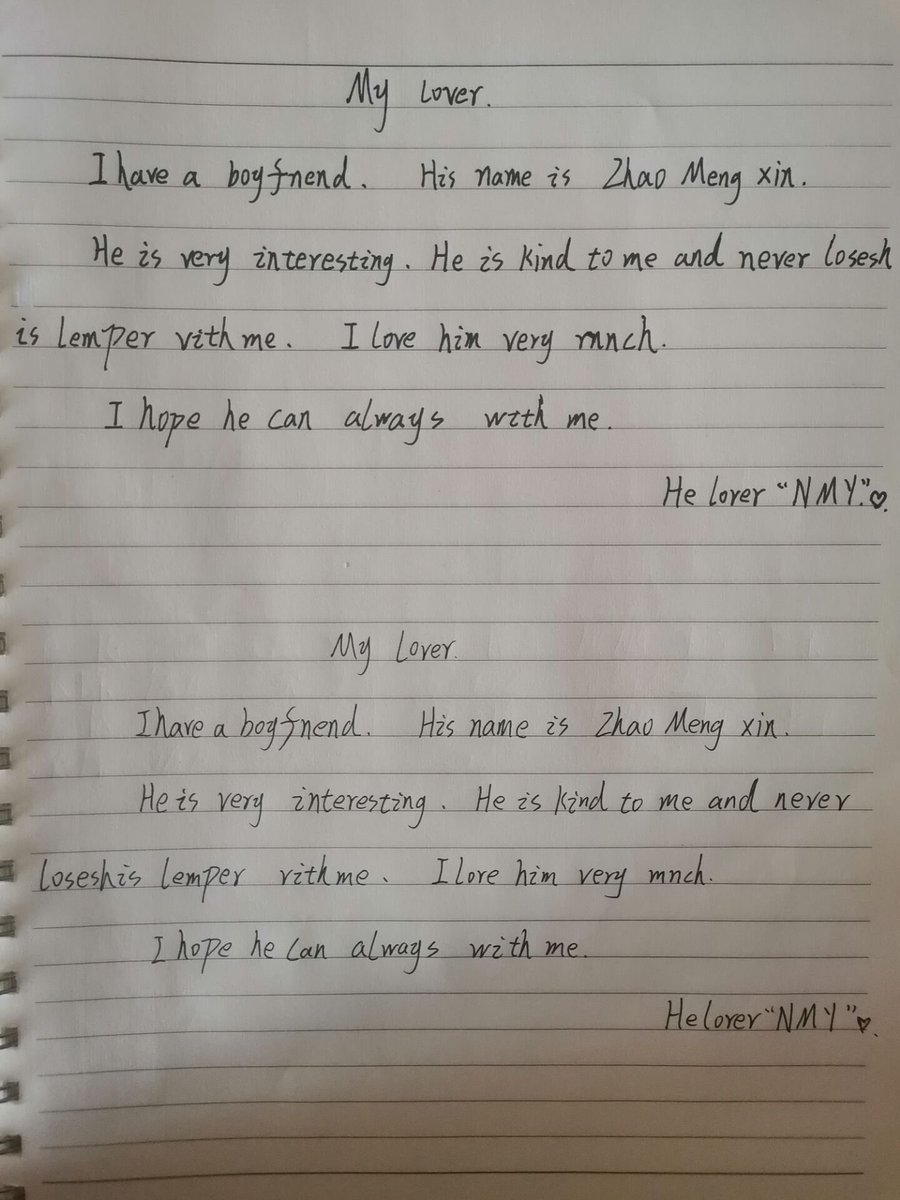 My Lover.
I have a boyfnend. His name is Zhao Meng xin.
He is very interesting. He is kind to me and never losesh
is lemper vith me. I love him very mnch.
I hope he can always with me.
He lover "NMY."♡.
My Lover.
I have a boyfnend. His name is Zhao Meng xin.
He is very interesting. He is kind to me and never
loseshis lemper vith me. I love him very mnch.
I hope he can always with me.
He lover "NMY"♡.